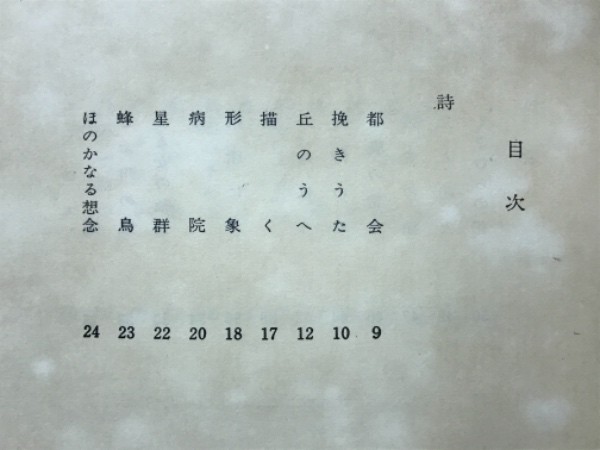 目次
詩
都会 9
挽きうた 10
丘のうへ 12
描く 17
形象 18
病院 20
星群 22
蜂鳥 23
ほのかなる想念 24